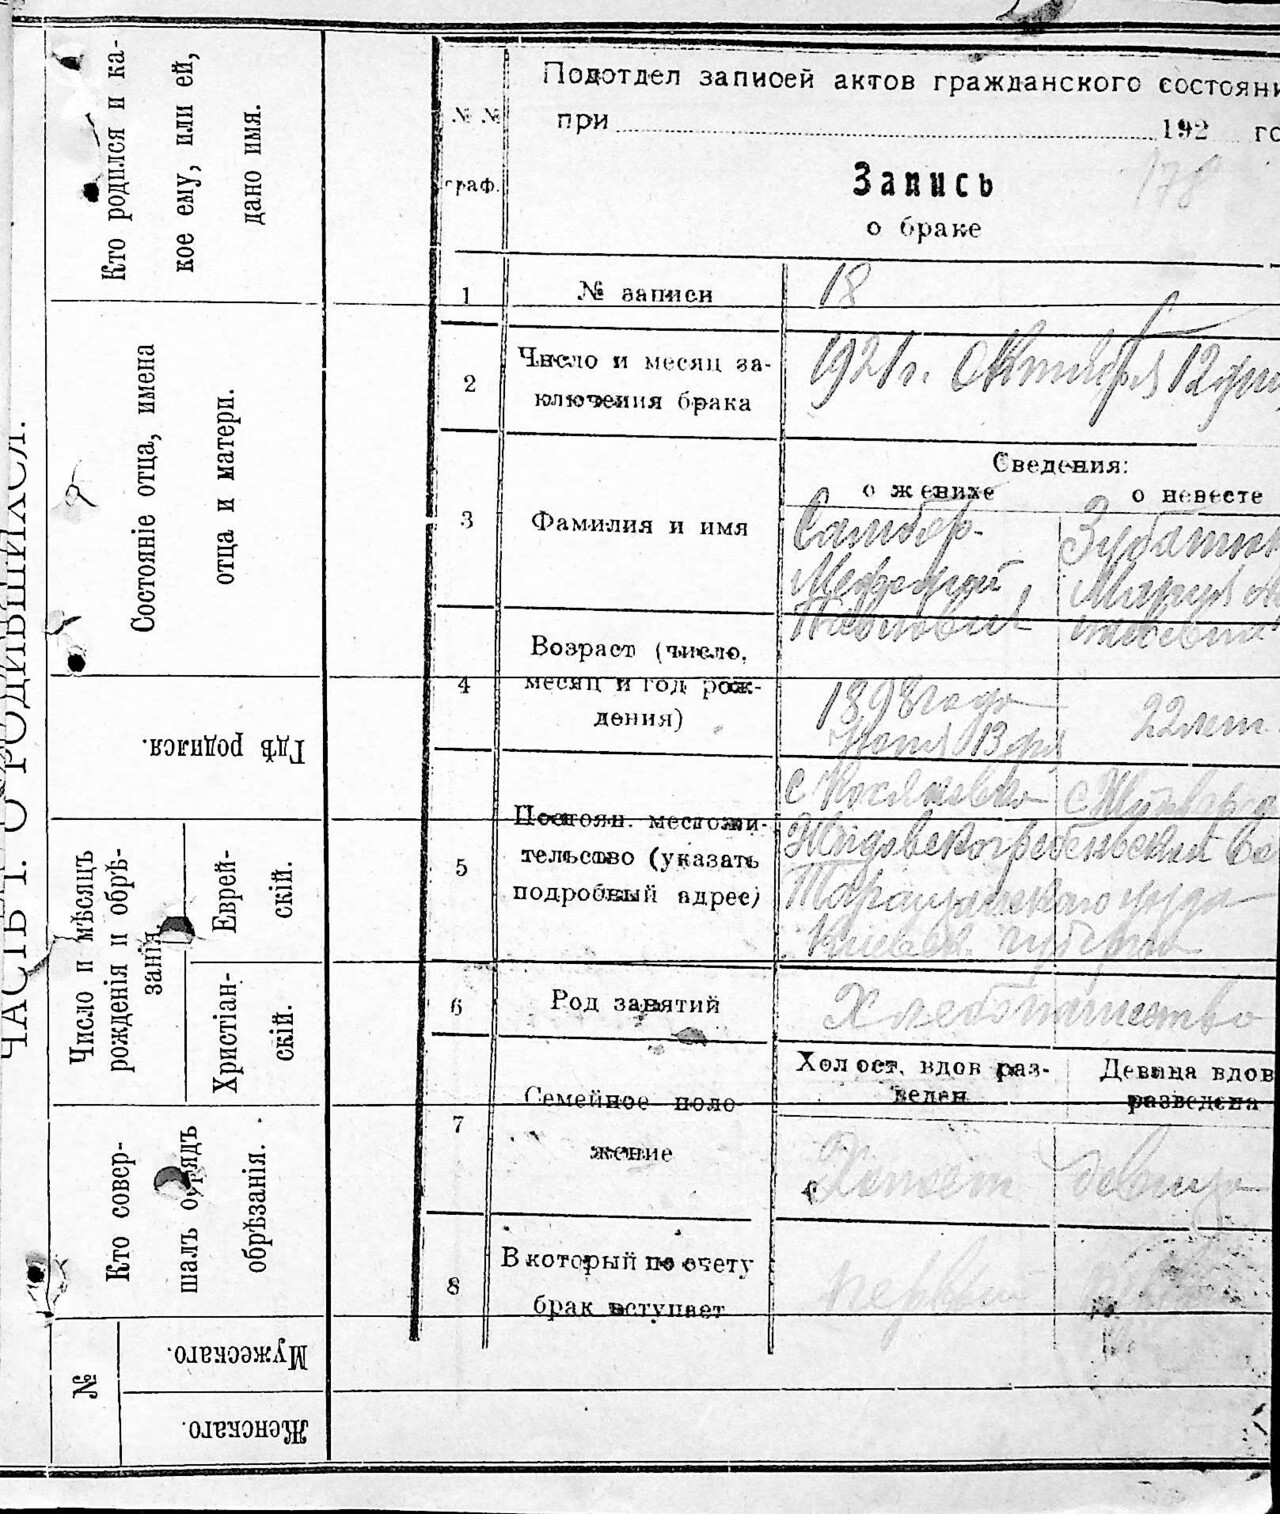 ЧАСТЬ I. О РОДИВШИХСЯ.
Кто родился и ка-
кое ему, или ей,
дано имя.
Состояніе отца, имена
отца и матери.
Гдѣ родился.
Число и мѣсяцъ
рожденія и обрѣ-
занія.
Еврей-
скій.
Христіан-
скій.
Кто совер-
шалъ обрядъ
обрѣзанія.
№
Мужескаго.
Женскаго.
Подотдел записей актов гражданского состояни
при 192 го
№ №
граф.
Запись
178
о браке
1 № записи 18
2 Число и месяц за-
ключения брака
1921 г. Октября 12 дня
Сведения:
о женихе о невесте
3 Фамилия и имя
Самбор-
Мефодий
Павлович
Зубатюк
Мария
4 Возраст (число,
месяц и год рож-
дения)
1898 года
Июня 13 дня
22 лет
5 Постоян. местожи-
тельство (указать
подробный адрес)
с Косяковка с
Жидовскогребельский во
Таращанского уезда
Киевск. губернии
6 Род занятий Хлебопашество
7 Семейное поло-
жение
Холост, вдов раз-
веден
Девица вдов
разведена
Холост девица
8 В который по счету
брак вступает
первый